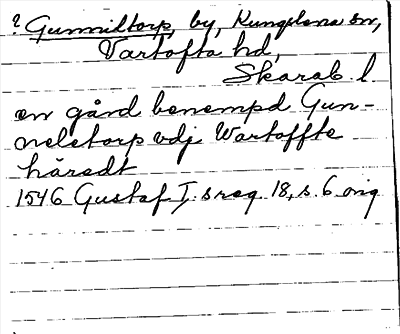 ? Gunniltorp, by, Kungslena sn,
Vartofta hd,
Skarab. l
en gård benempd Gun-
neletorp vdj Wartoffte
häredt
1546 Gustaf I:s reg. 18, s. 6 orig